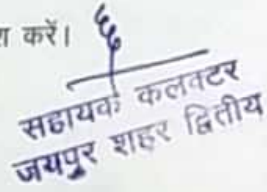 करें।
सहायक कलक्टर
जयपुर शहर द्वितीय